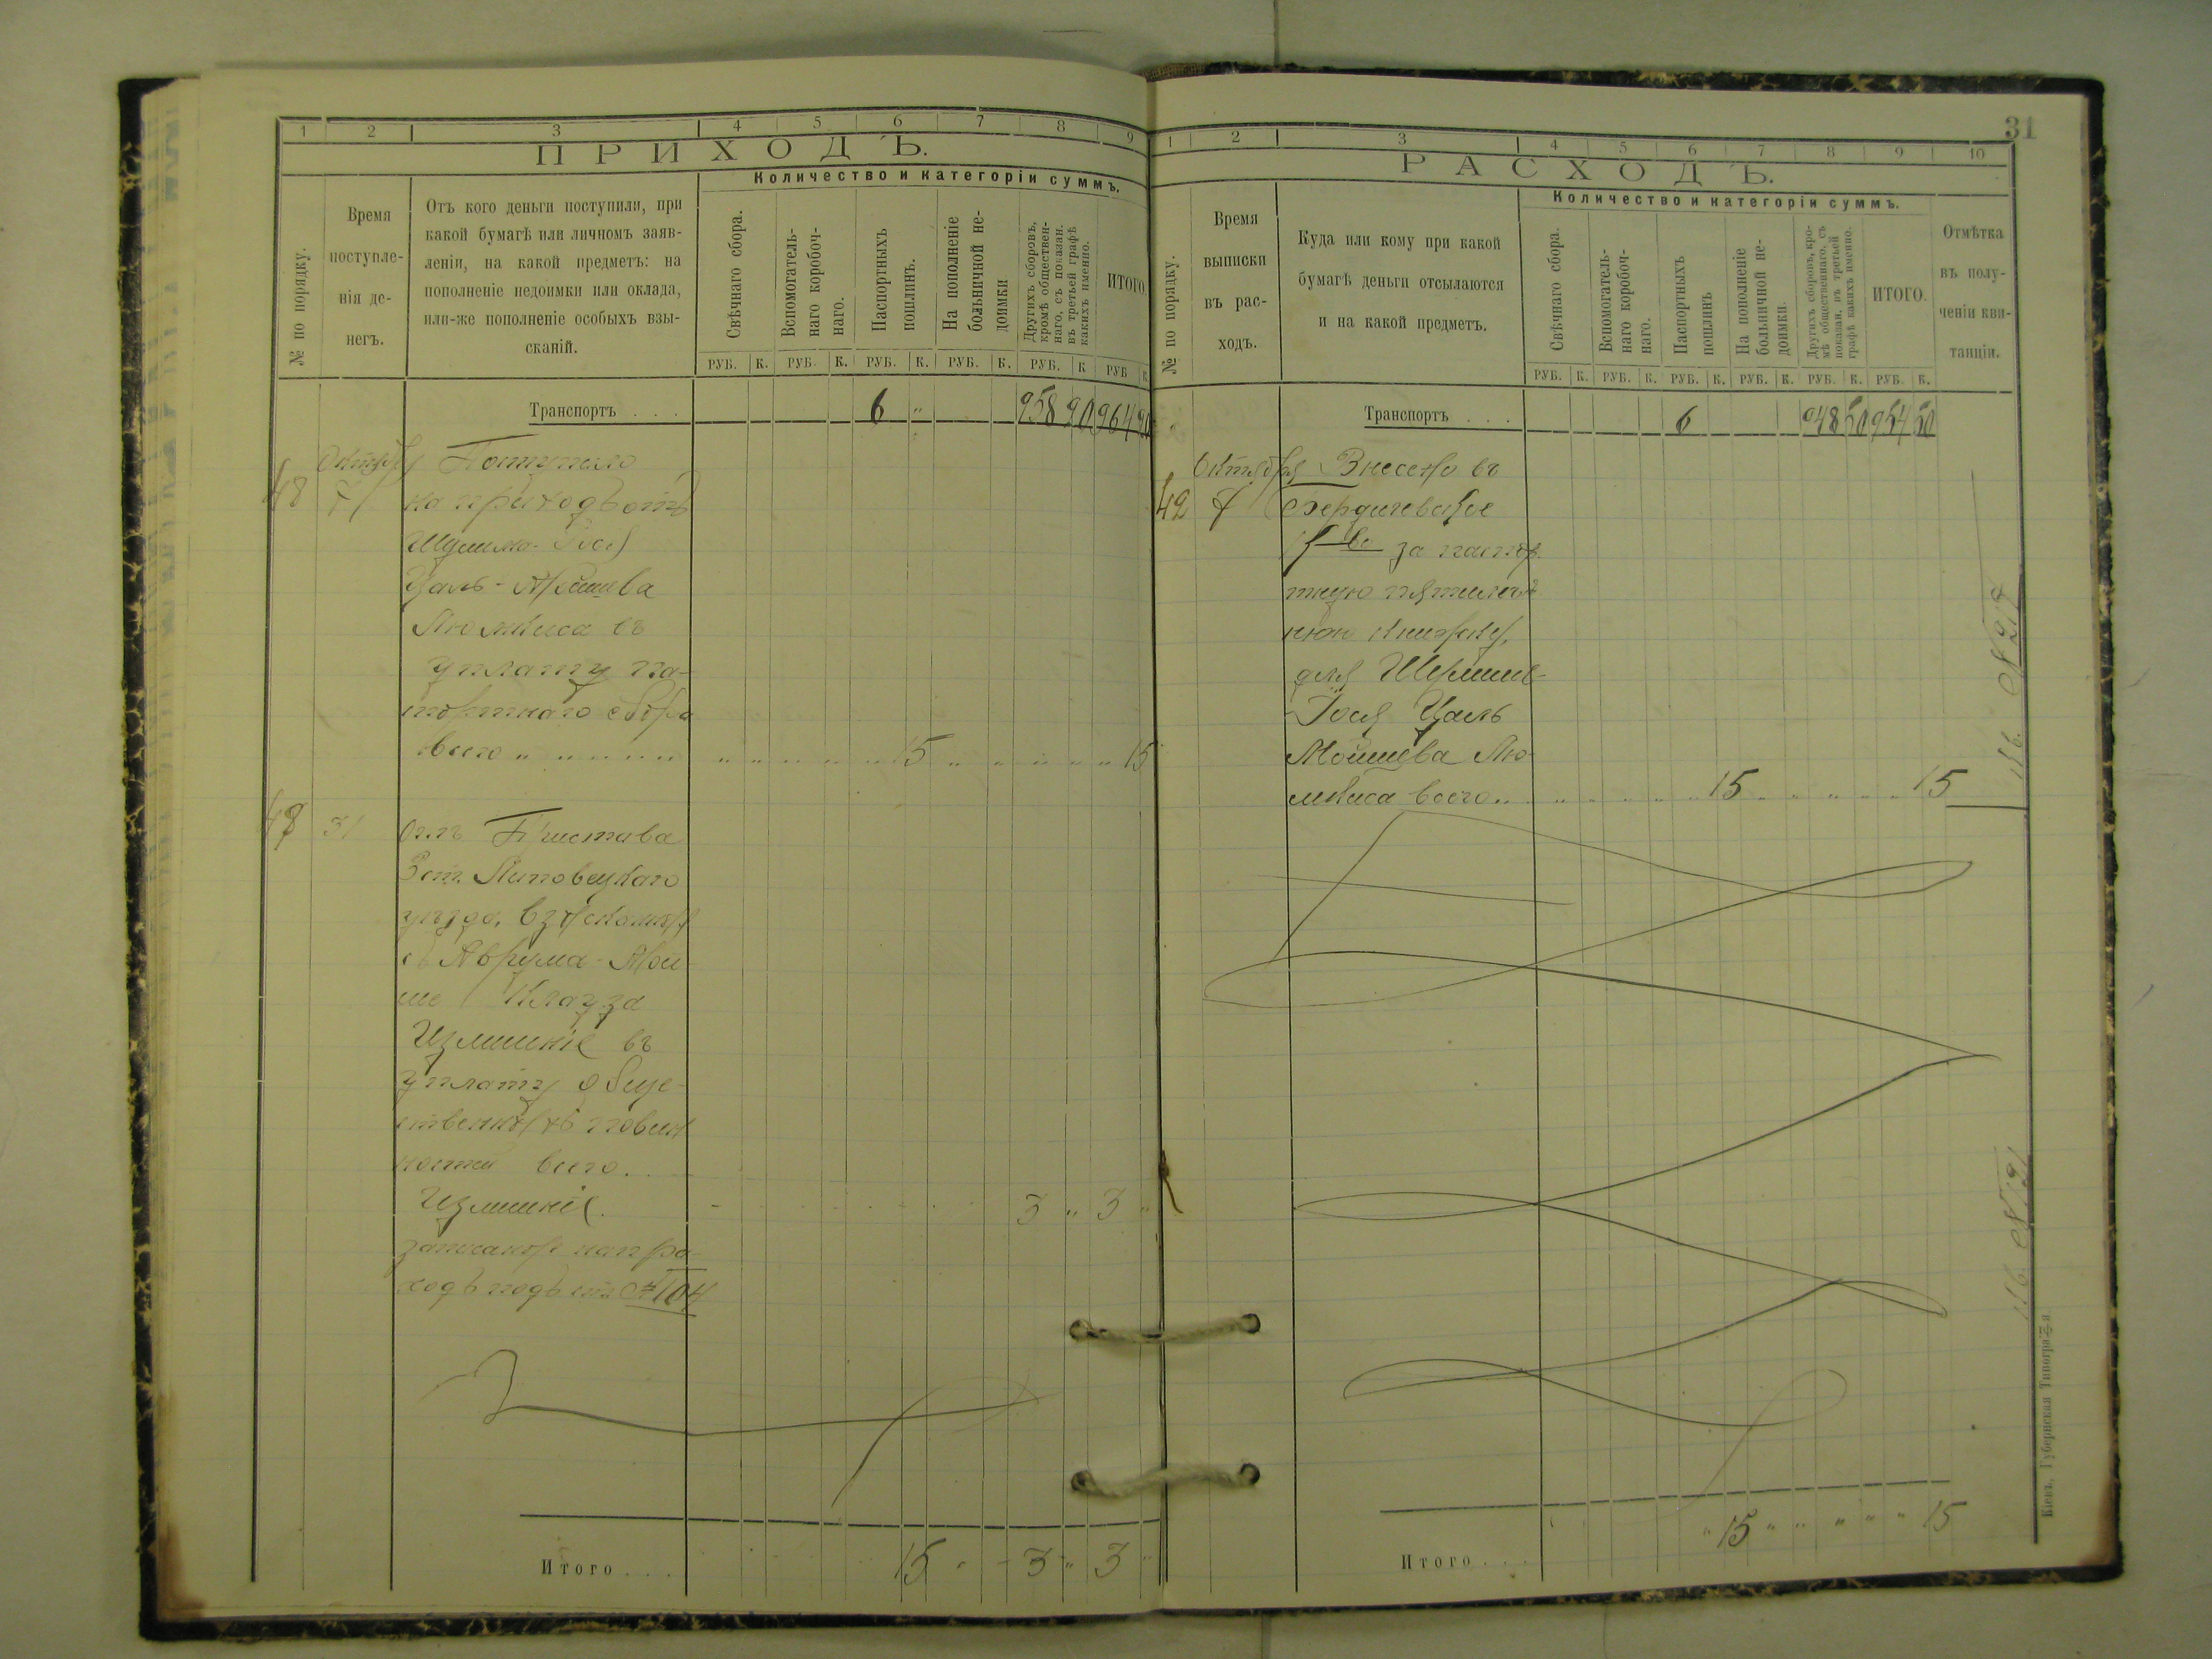 1 2 3 4 5 6 7 8 9
ПРИХОДЪ.
Количество и категоріи суммъ.
№ по порядку.
Время
поступле-
нія де-
негъ.
Отъ кого деньги поступили, при
какой бумагѣ или личномъ заяв-
леніи, на какой предметъ: на
пополненіе недоимки или оклада,
или-же пополненіе особыхъ взы-
сканій.
Свѣчнаго сбора.
Вспомогатель-
наго коробоч-
наго.
Паспортныхъ
пошлинъ.
На пополненіе
больничной не-
доимки
Другихъ сборовъ,
кромѣ обществен-
наго, съ показан.
въ третьей графѣ
какихъ именно.
ИТОГО.
РУБ. К. РУБ. К. РУБ. К. РУБ. К. РУБ. К РУБ К
Транспортъ . . . 6 „ 958 90 964 90
Октября Поступило
48 7 на приходъ отъ
Шулима-Іося
Цаль-Мошева
Люмкиса въ
уплату па-
спортнаго сбора
всего „ „ „ „ „ 15 „ „ „ „ 15
31 Отъ Пристава
3 ст. Липовецкаго
уѣзда, взысканные
съ Аврума-Мои-
ше Клауза
Излишніе въ
уплату обще-
ственныхъ повин
ностей всего.
Излишніе. 3 „ 3 „
записаны на при
ходъ подъ ст. №104
Итого . . . 15 3 „ 3 „
31
1 2 3 4 5 6 7 8 9 10
РАСХОДЪ.
Количество и категоріи суммъ.
№ по порядку.
Время
выписки
въ рас-
ходъ.
Куда или кому при какой
бумагѣ деньги отсылаются
и на какой предметъ.
Свѣчнаго сбора.
Вспомогатель-
наго коробоч-
наго.
Паспортныхъ
пошлинъ
На пополненіе
больничной не-
доимки.
Другихъ сборовъ, кро-
мѣ общественнаго, съ
показан. въ третьей
графѣ какихъ именно.
ИТОГО.
Отмѣтка
въ полу-
ченіи кви-
танціи.
РУБ. К. РУБ. К. РУБ. К. РУБ. К. РУБ. К. РУБ. К.
Транспортъ . . . 6 948 50 954 50
Октября Внесено въ
42 7 Бердичевское
за паспор
тную пятилѣт
нюю книжку,
для Шулима-
Іося Цаль
Мошева Лю-
мкиса всего „ 15 „ „ „ „ 15
Итого . . . „ 15 „ „ „ „ „ 15
Кіевъ, Губернская Типографія